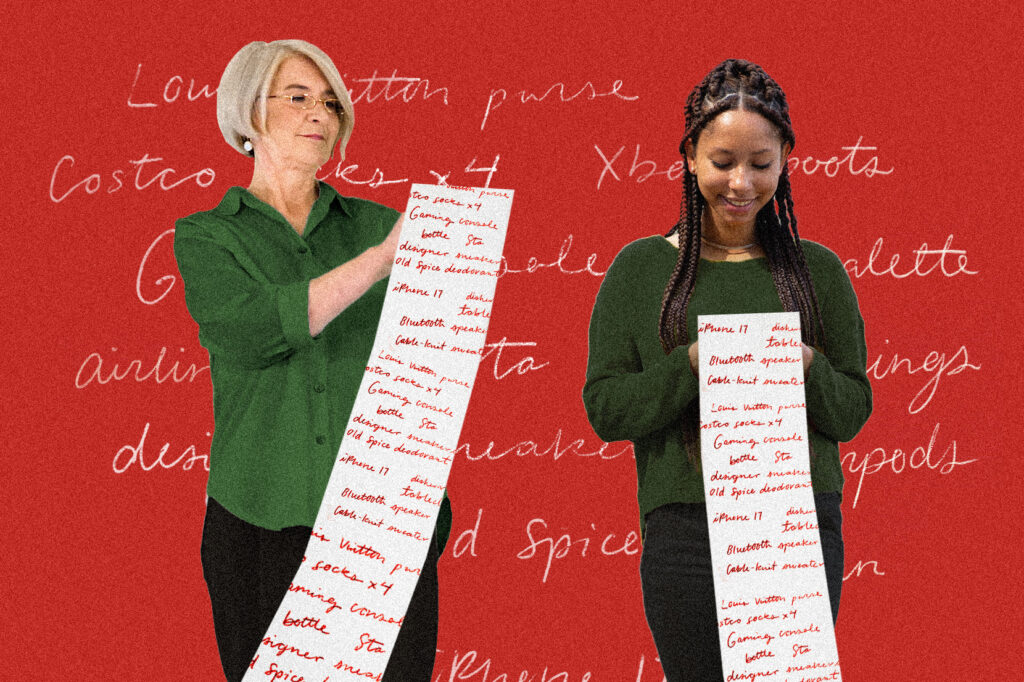 Lou itton purse
Costco cks x 4 Xbo boots
G sole alette
airlin ta ings
desi neaker rpods
d Spice n
iPhone 1
Vuitton purse
stco socks x4
Gaming console
bottle Sta
designer sneaker
Old Spice deodorant
iPhone 17 dishe
tablec
Bluetooth speaker
Cable-knit sweater
Louis Vuitton purse
ostco socks x4
Gaming console
bottle Sta
designer sneaker
Old Spice deodorant
iPhone 17 dishe
tablec
Bluetooth speaker
Cable-knit sweater
Louis Vuitton pur
co socks x4
aming console
bottle Sta
signer sneak
ld Spice deod
iPhone 17 dishe
tablec
Bluetooth speaker
Cable-knit sweater
Louis Vuitton purse
ostco socks x4
Gaming console
bottle Sta
designer sneaker
Old Spice deodorant
iPhone 17 dishe
tablec
Bluetooth speaker
Cable-knit sweater
Louis Vuitton purse
stco socks x4
Gaming console
bottle Sta
designer sneaker
Old Spice deodorant